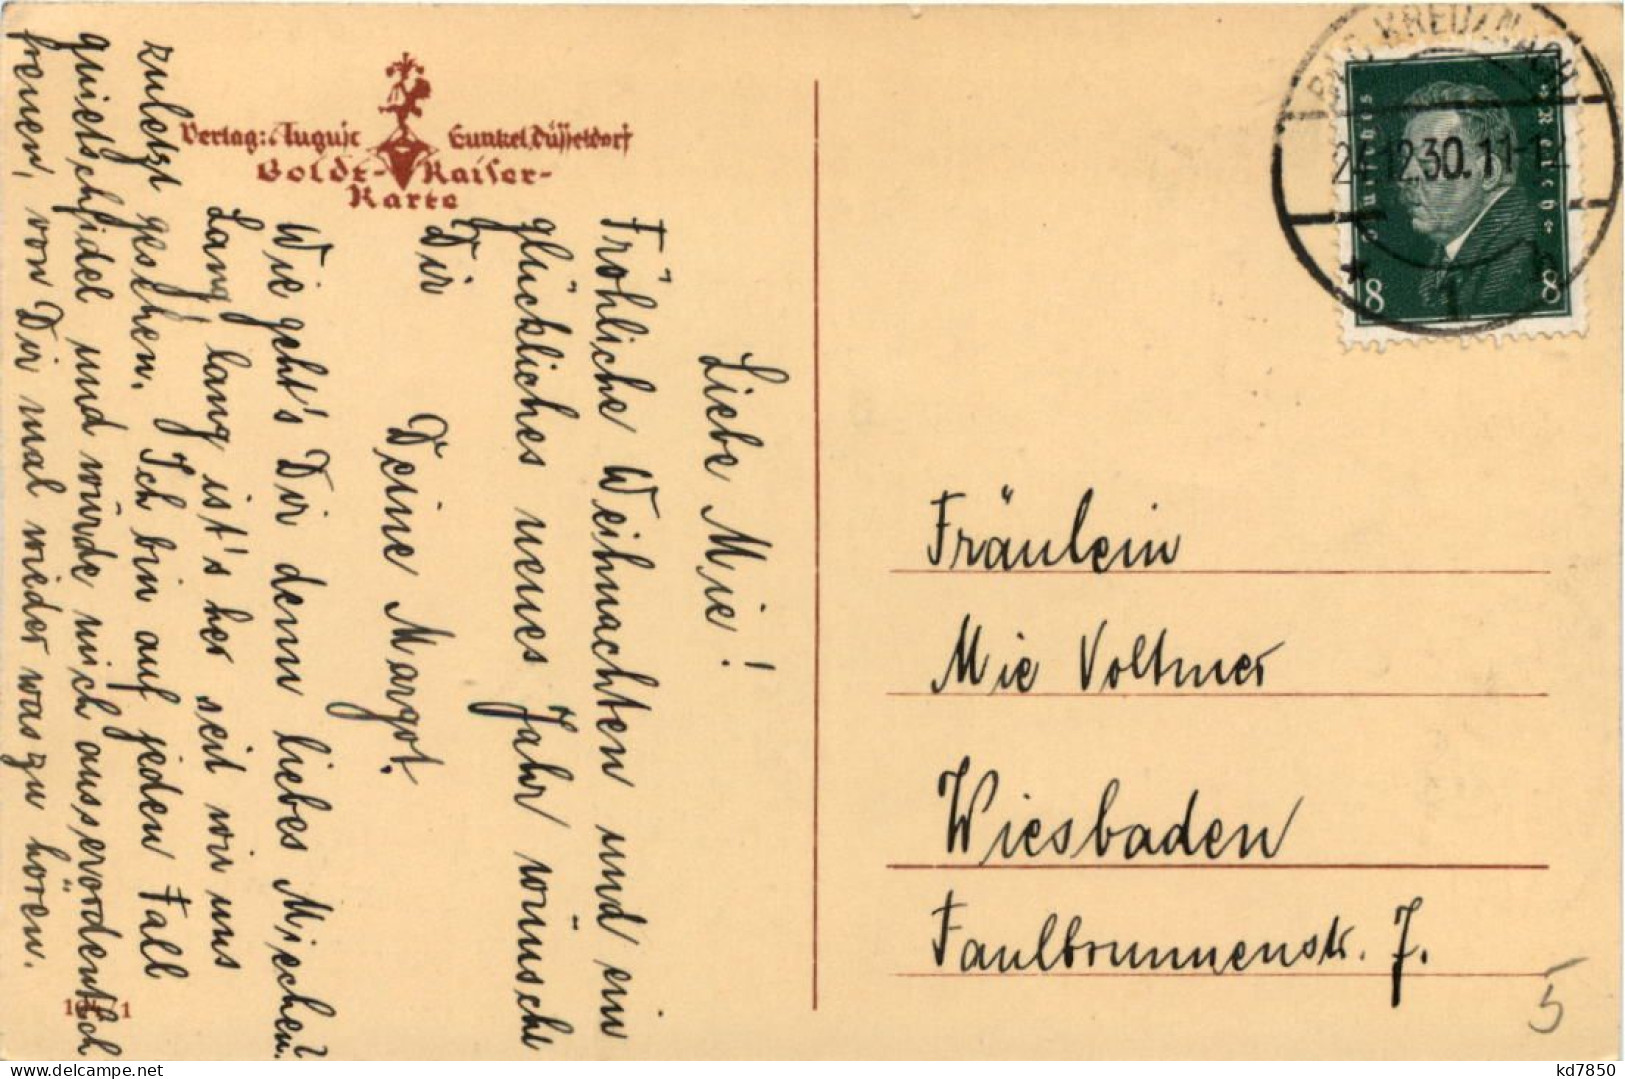 Verlag: August Gunkel, Düsseldorf
Boldt-Kaiser-
Karte
Liebe Mie!
Fröhliche Weihnachten und ein
glückliches neues Jahr wünscht
Dir
Deine Margot.
Wie geht's Dir denn liebes Miechen?
Lang' lang ist's her seit wir uns
zuletzt gesehen. Ich bin auf jeden Fall
quietschfidel und würde mich ausserordentlich
freuen, von Dir mal wieder was zu hören.
BAD KREUZNACH
24.12.30. 11-12
* 1
Deutsches Reich
8 8
Fräulein
Mie Voltmer
Wiesbaden
Faulbrunnenstr. 7.
5
kd7850